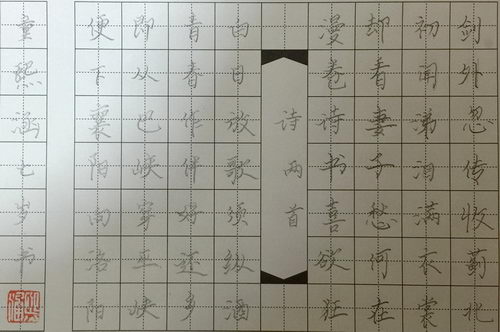 剑外忽传收蓟北
初闻涕泪满衣裳
却看妻子愁何在
漫卷诗书喜欲狂
诗两首
白日放歌须纵酒
青春作伴好还乡
即从巴峡穿巫峡
便下襄阳向洛阳
童熙涵七岁书